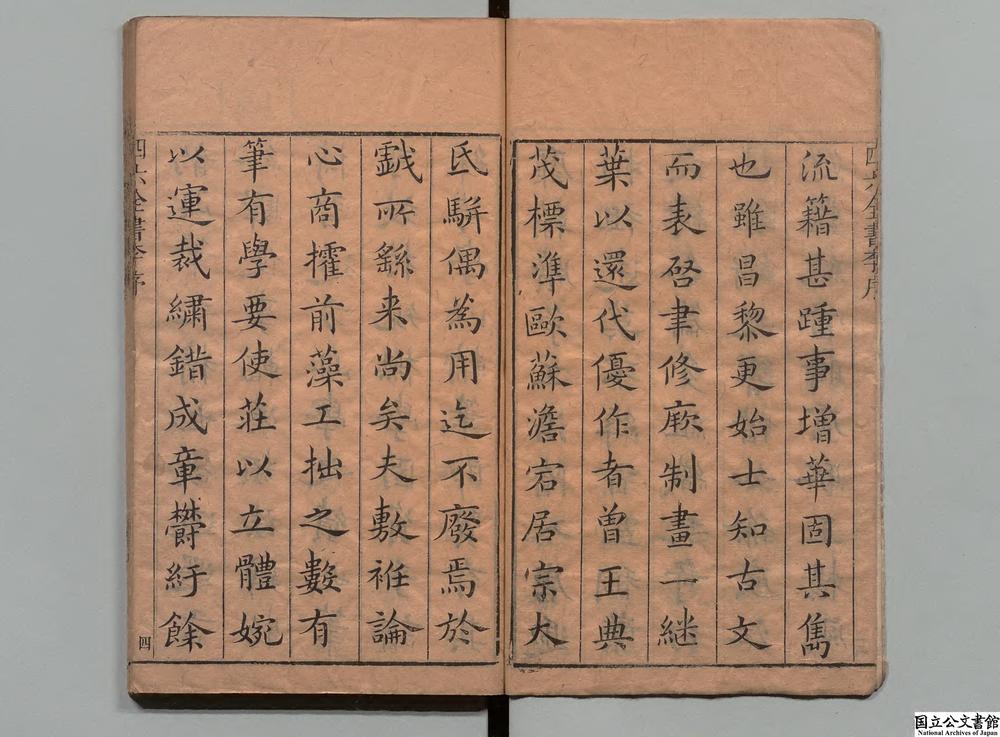 四六全書李序
流籍甚踵事增華固其雋
也雖昌黎更始士知古文
而表啓聿修厥制畫一繼
葉以還代優作者曾王典
茂標準歐蘇澹宕居宗大
氐駢偶為用迄不廢焉於
戱所繇来尚矣夫敷袵論
心商擢前藻工拙之數有
筆有學要使莊以立體婉
以運裁繡錯成章欎紆餘
四六全書李序
四
国立公文書館
National Archives of Japan